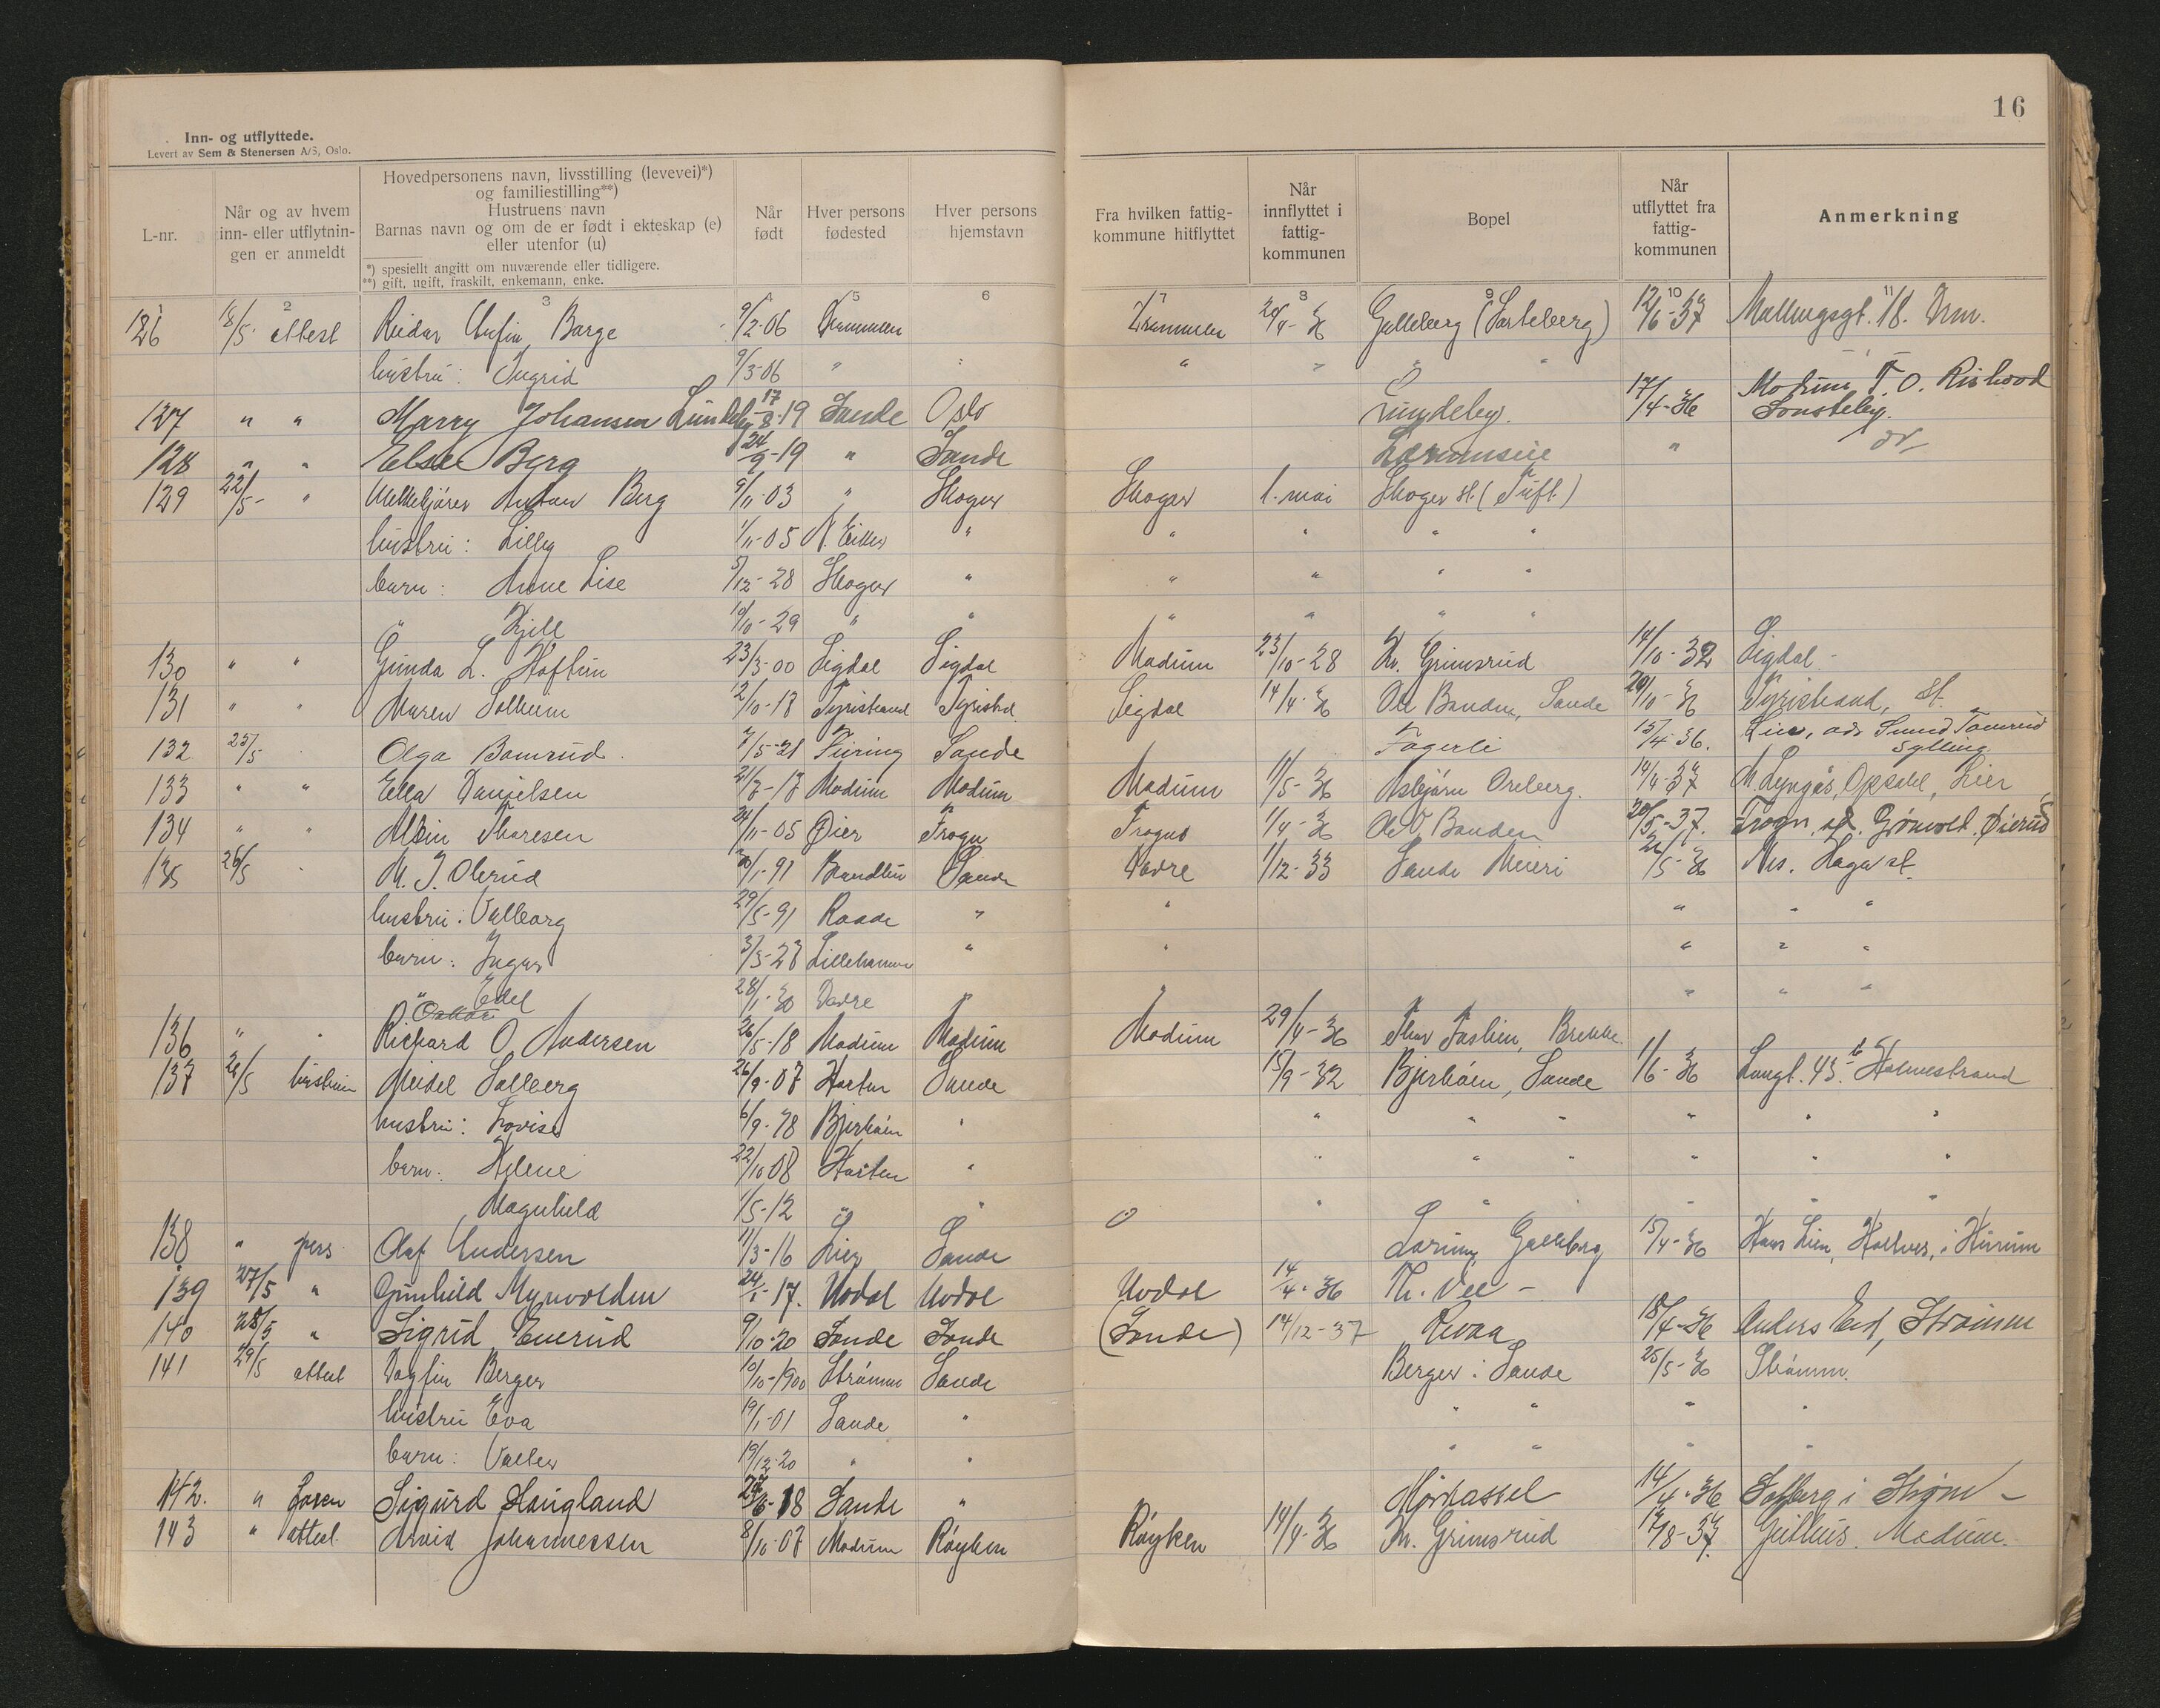 16
Inn- og utflyttede.
Levert av Sem & Stenersen A/S, Oslo.
L-nr.
Når og av hvem inn- eller utflytnin-gen er anmeldt
Hovedpersonens navn, livsstilling (levevei)*) og familiestilling**)
Hustruens navn
Barnas navn og om de er født i ekteskap (e) eller utenfor (u)
*) spesiellt angitt om nuværende eller tidligere.
**) gift, ugift, fraskilt, enkemann, enke.
Når født
Hver persons fødested
Hver persons hjemstavn
Fra hvilken fattig-kommune hitflyttet
Når innflyttet i fattig-kommunen
Bopel
Når utflyttet fra fattig-kommunen
Anmerkning
2 3 5 6 7 8 9 10 11
126 18/5 attest Reidar Borge 9/2-06 Drammen Drammen 20/4-36 Galleberg (Sarteberg) 12/6-37 18. Drm.
hustru: Ingrid 9/3-06 " " " " " "
127 " " Marry Johansen Lundeby 17/8-19 Sande Oslo Lundeby. 17/4-36 Modum, T. O. Rishovd Sønsteby.
128 " " Else Berg 24/9-19 " Sande "
129 22/5- " Anton Berg 9/11-03 " Skoger Skoger 1. mai Skoger st. (Tuft.)
hustru: Lilly 1/11-05 N. Eiker " " " " "
barn: Anne Lise 5/12-28 Skoger " " " " "
" Kjell 10/10-29 " " " " " "
130 " " Gunda L. Haftun 23/3-00 Sigdal Sigdal Modum 23/10-28 Kr. Grimsrud 14/10-32 Sigdal -
131 " " Maren Solheim 12/10-18 Tyristrand Tyristd. Sigdal 14/4-36 Ole Banden, Sande 20/10-36 Tyristrand, st.
132 25/5 Olga Bamrud 7/5-21 Sande Fagerli 15/4-36. Lier, adr. Tamrud Sylling
133 " " Ella Danielsen 21/3-18 Modum Modum Modum 11/5-36 Asbjørn Oreberg. 14/4-37 M. Lyngås, Opsahl, Lier
134 " " Thoresen 24/11-05 Øier Frogn Frogn 1/4-36 Ole O. Banden 20/5-37. Frogn, Grønvold, Øierud
135 26/5 M. J. Olerud 30/1-91 Sande Dovre 1/12-33 Sande Meieri 26/5-36 Nes. Haga st.
hustru: Valborg 29/5-91 Raade " " " " "
barn: Inger 3/3-23 Lillehammer " " " " "
" Edel 28/1-30 Dovre " " " " "
136 " Richard O. Andersen 26/5-18 Modum Modum Modum 29/4-36 Thor Foslien, Brekke.
137 26/5 Meidel Solberg 26/9-07 Horten Sande 15/9-32 Bjerkøen, Sande 1/6-36 Langt. 45. Holmestrand
hustru: Lovise 6/9-78 Bjerkøen " " " " " " "
barn: Helene 22/10 08 Horten " " " " " " "
Magnhild 1/5-12 " " " " " " "
138 " pers. Olaf Andersen 11/3-16 Lier Sande Galleberg 15/4-36 Hans Lien, i Hurum
139 27/5 " Gunhild Myrvolden 24/1-17. Uvdal Uvdal Uvdal 14/4-36 Th. Vee -
140 28/5 " Sigrid Enerud 9/10-20 Sande Sande (Sande) 14/12-37 Revaa 18/4-36 Anders Eed, Strømm
141 29/5 attest Dagfin Berger 10/10-1900 Strømm Sande Berger i Sande 25/5-36 Strømm.
hustru Eva 19/1-01 Sande " " " " "
barn: 19/12-20 " " " " " "
142. " Sigurd Haugland 27/6-18 Sande " Mørkassel 14/4-36 Solberg i Strøm -
143 " attest Arvid Johannessen 8/10-07 Modum Røyken Røyken 14/4-36 Kr. Grimsrud 14/8-37. Geithus. Modum.